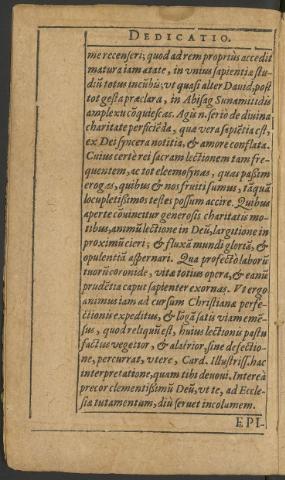 DEDICATIO.
me recenseri; quod ad rem propriùs accedit
matura iam ætate, in vnius sapientiæ stu-
diũ totus incũbis; vt quasi alter Dauid, post
tot gesta præclara, in Abisag Sunamitidis
amplexu cõquiescas. Agis n. seriò de diuina
charitate perficiẽda, qua vera sapiẽtia est,
ex Dei syncera notitia, & amore conflata.
Cuius certè rei sacram lectionem tam fre-
quentem, ac tot eleemosynas, quas passim
erogas, quibus & nos fruiti sumus, tãquã
locupletissimos testes possum accire. Quibus
aperte cõuincitur generosis charitatis mo-
tibus, animũ lectione in Deũ, largitione in
proximũ cieri; & fluxã mundi gloriã, &
opulentiã aspernari. Qua profectò laborũ
tuorũ coronide, vitæ totius opera, & canũ
prudẽtia caput sapienter exornas. Vt ergo
animus iam ad cursum Christianæ perfe-
ctionis expeditus, & lõgã satis viam emẽ-
sus, quod reliquũ est, huius lectionis pastu
factus vegetior, & alacrior, sine defectio-
ne, percurrat, vtere, Card. Illustriss. hac
interpretatione, quam tibi deuoui. Intereà
precor clementissimũ Deũ, vt te, ad Eccle-
siæ tutamentum, diù seruet incolumem.
EPI-